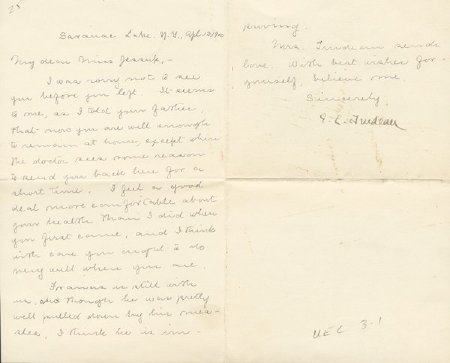 Saranac Lake, N.Y. Apl 12/1900
My dear Miss Jessup,-
I was sorry not to see
you before you left. It seems
to me, as I told your father,
that now you are well enough
to remain at home, except when
the doctor sees some reason
to send you back here for a
short time. I feel a good
deal more comfortable about
your health than I did when
you first came, and I think
with care you ought to do
very well where you are.
Francis is still with
us, and though he was pretty
well pulled down by his mea-
sles, I think he is im-
proving.
Mrs. Trudeau sends
love. With best wishes for
yourself, believe me,
Sincerely,
E. L. Trudeau
3-1